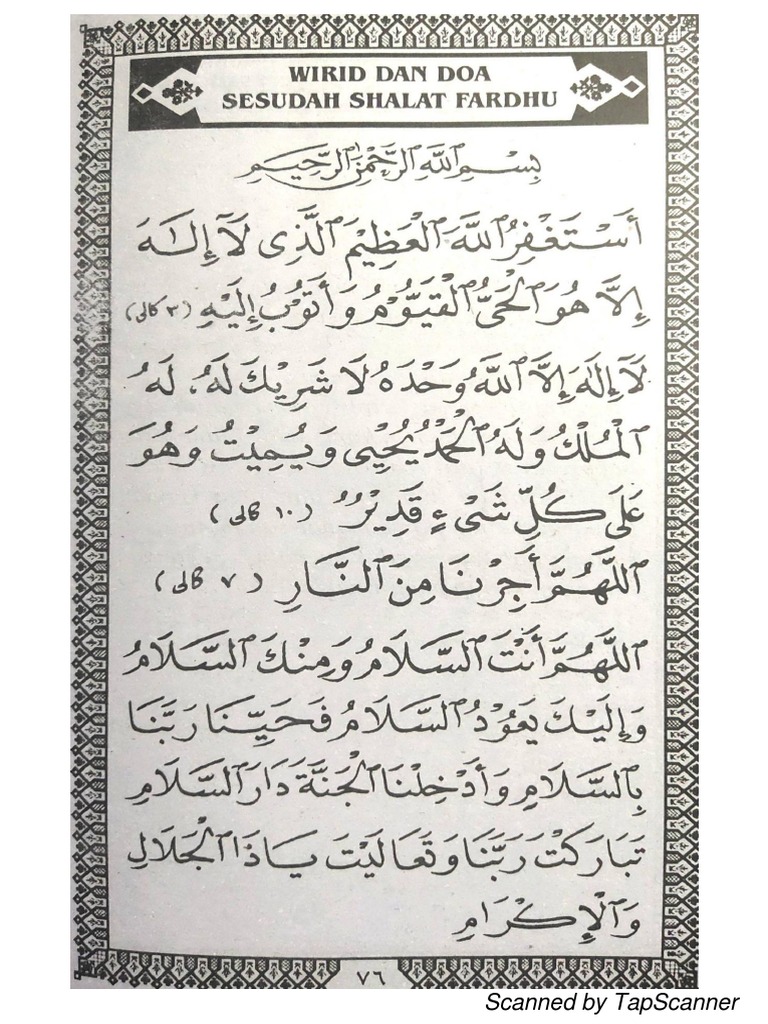 WIRID DAN DOA
SESUDAH SHALAT FARDHU
بِسْمِ اللّٰهِ الرَّحْمٰنِ الرَّحِيْمِ
أَسْتَغْفِرُ اللّٰهَ الْعَظِيْمَ الَّذِى لَآ إِلٰهَ
إِلَّا هُوَ الْحَىُّ الْقَيُّوْمُ وَأَتُوْبُ إِلَيْهِ (٣ كالى)
لَآ إِلَهَ إِلَّا اللّٰهُ وَحْدَهُ لَا شَرِيْكَ لَهُ، لَهُ
الْمُلْكُ وَلَهُ الْحَمْدُ يُحْيِىْ وَيُمِيْتُ وَهُوَ
عَلَى كُلِّ شَىْءٍ قَدِيْرٌ (١٠ كالى)
اللّٰهُمَّ أَجِرْنَا مِنَ النَّارِ (٧ كالى)
اللّٰهُمَّ أَنْتَ السَّلَامُ وَمِنْكَ السَّلَامُ
وَإِلَيْكَ يَعُوْدُ السَّلَامُ فَحَيِّنَا رَبَّنَا
بِالسَّلَامِ وَأَدْخِلْنَا الْجَنَّةَ دَارَ السَّلَامِ
تَبَارَكْتَ رَبَّنَا وَتَعَالَيْتَ يَاذَا الْجَلَالِ
وَالْإِكْرَامِ
٧٦
Scanned by TapScanner